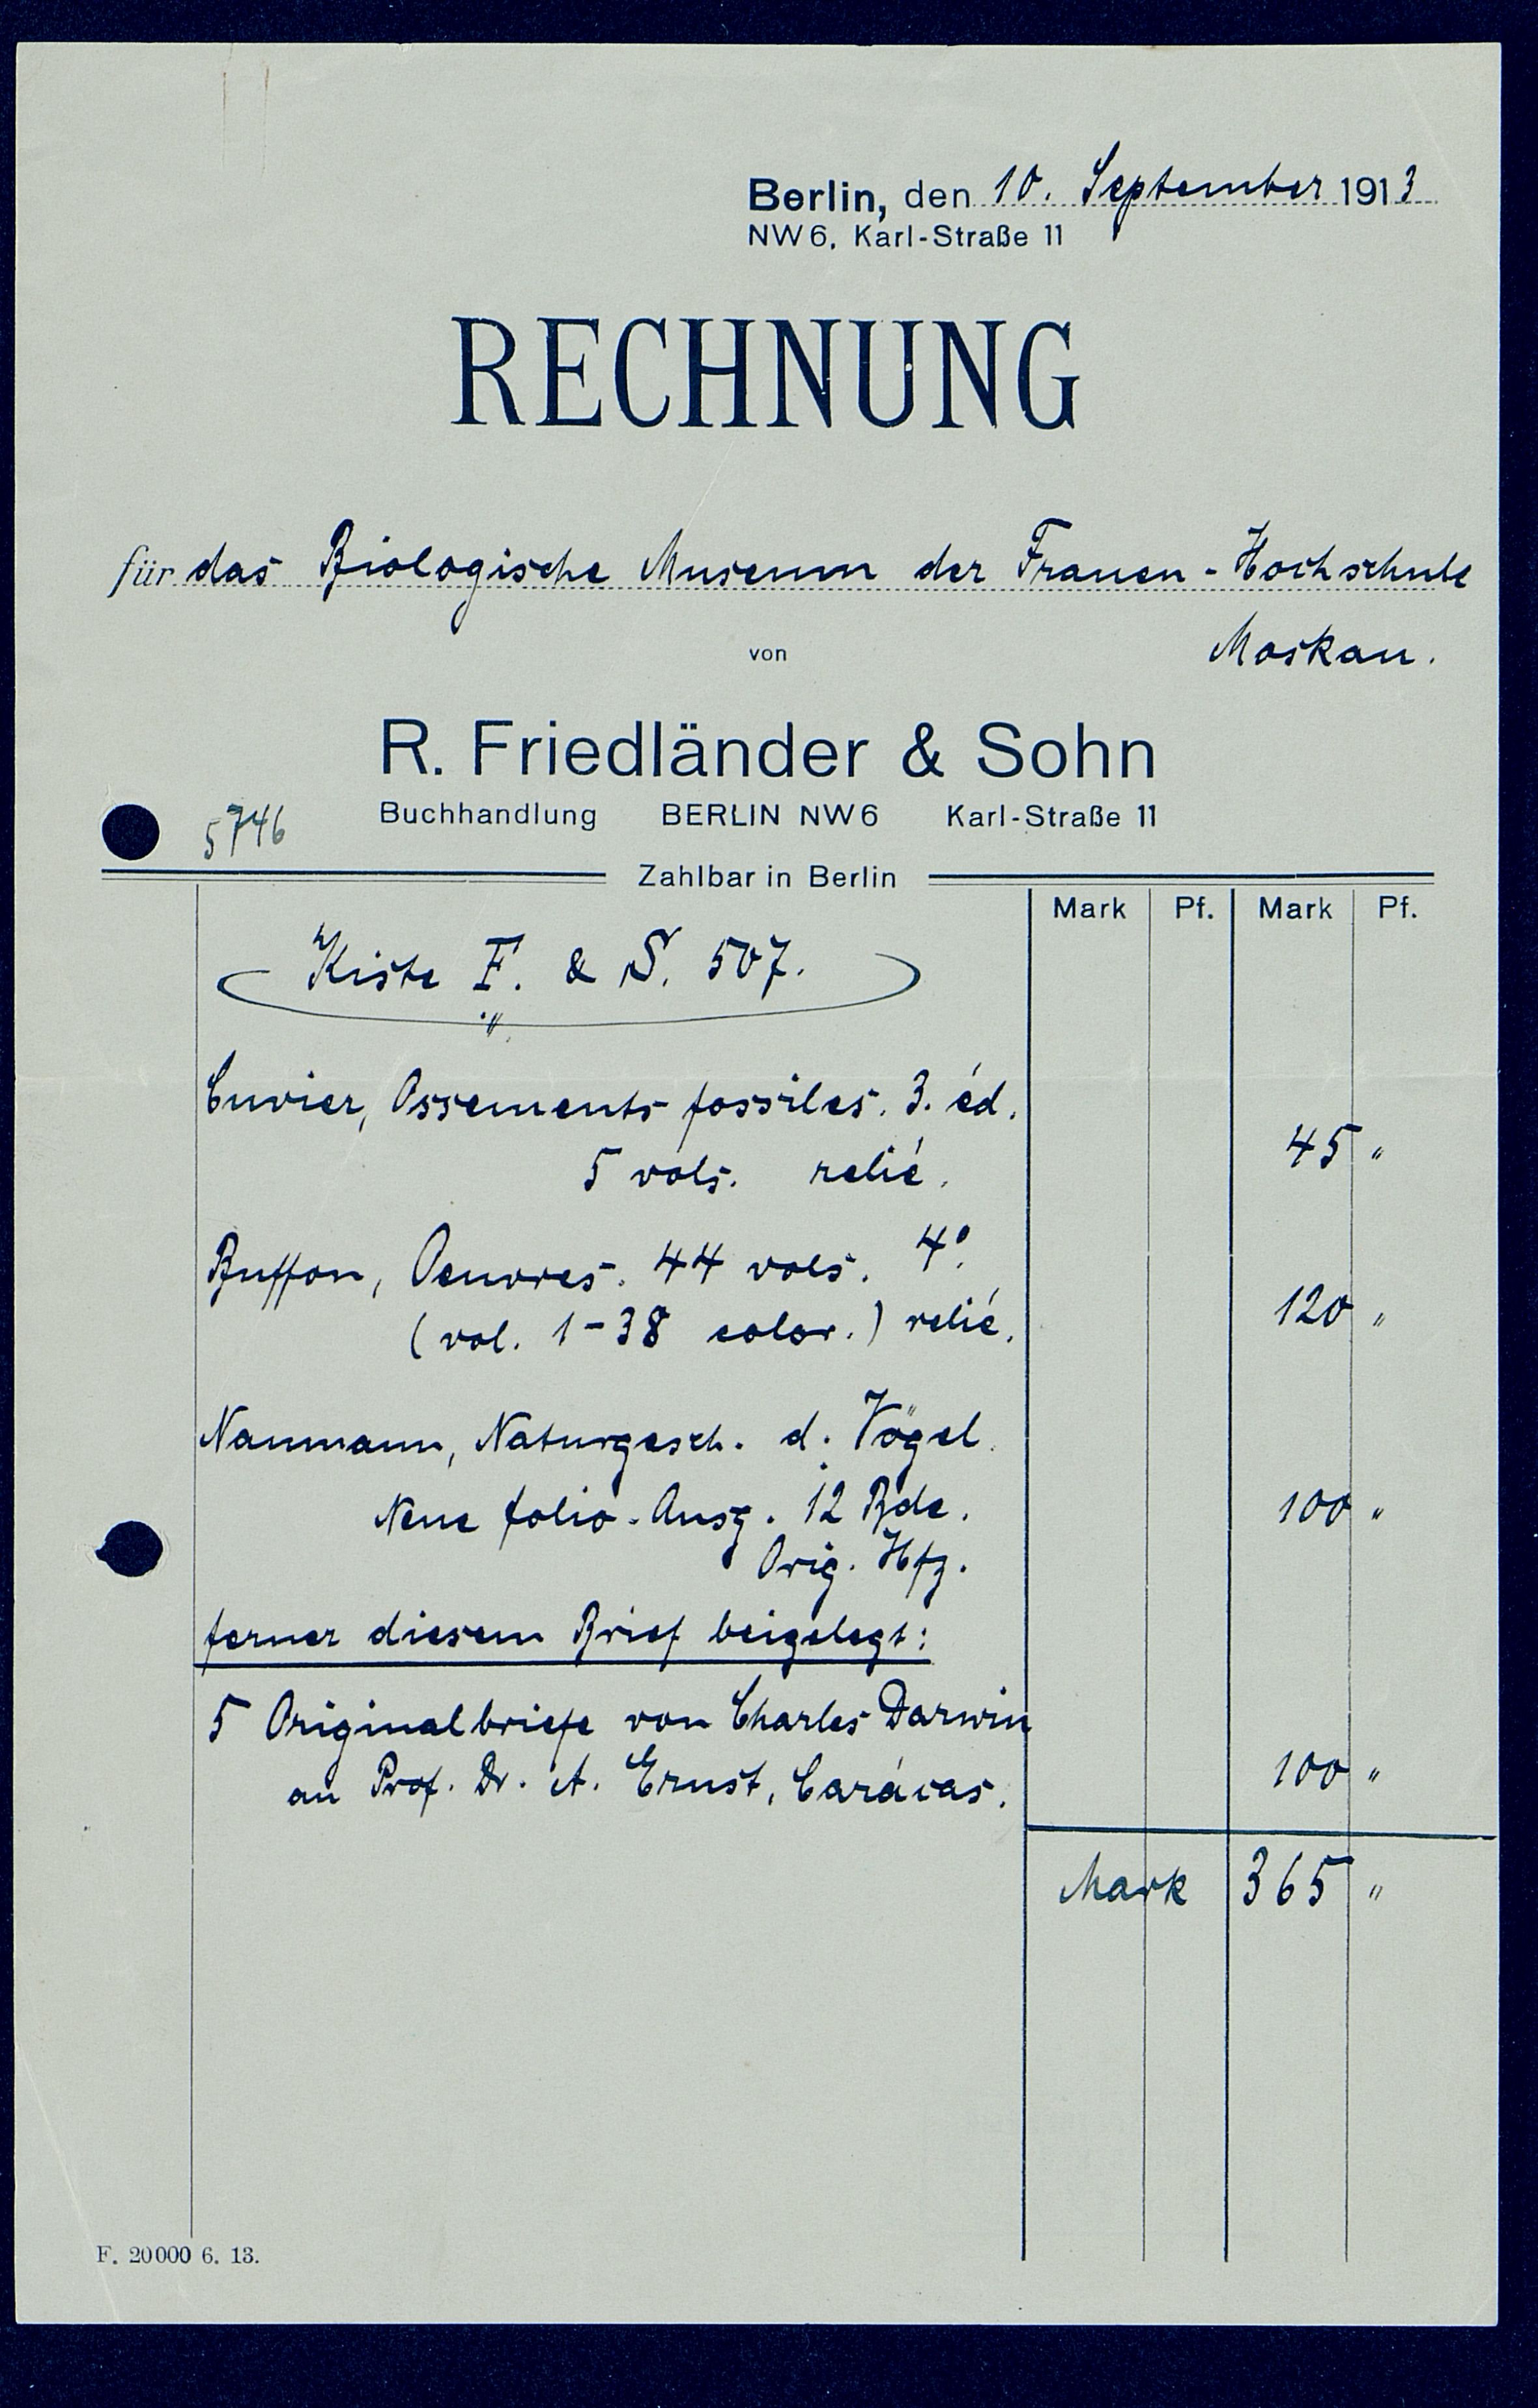 Berlin, den 10. September 1913
NW6, Karl-Straße 11
RECHNUNG
für das Biologische Museum der Frauen-Hochschule
Moskau.
von
R. Friedländer & Sohn
5746
Buchhandlung BERLIN NW6 Karl-Straße 11
Zahlbar in Berlin
Mark Pf. Mark Pf.
Kiste F. & S. 507.
Cuvier, Ossements fossiles. 3. éd.
5 vols. relié. 45 "
Buffon, Oeuvres. 44 vols. 4°.
(vol. 1-38 color.) relié. 120 "
Naumann, Naturgesch. d. Vögel.
Neue folio-Ausg. 12 Bde. 100 "
Orig. Hfz.
ferner diesem Brief beigelegt:
5 Originalbriefe von Charles Darwin
an Prof. Dr. A. Ernst, Carácas. 100 "
Mark 365 "
F. 20000 6. 13.